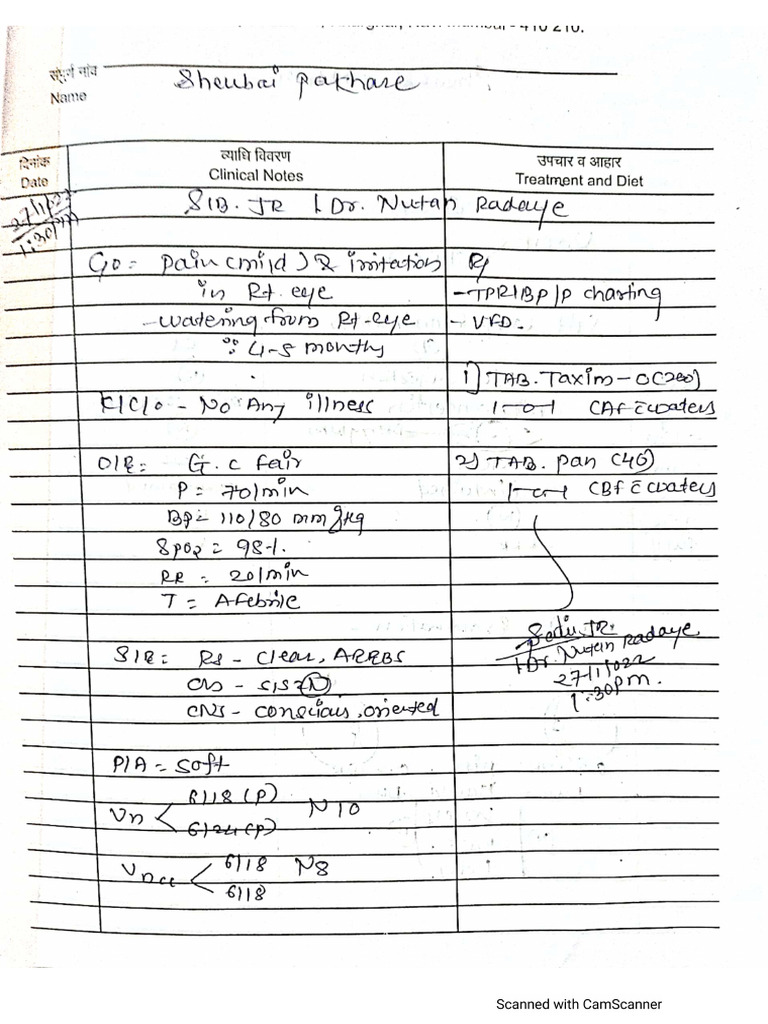 संपूर्ण नांव
Name Sheubai Pakhare
दिनांक व्याधि विवरण उपचार व आहार
Date Clinical Notes Treatment and Diet
27/1/22 S/B. JR / Dr. Nutan Radaye
1:30pm
C/o = Pain (mild) & irritation Rx
in Rt. eye - TPR/BP/P charting
- watering from Rt-eye - VFD.
∵ 4-5 months
1) TAB. Taxim-O (200)
K/C/O - No Any illness 1-o-1 CAF c waters
O/E = G.C fair 2) TAB. Pan (40)
P = 70/min 1-o-1 CBF c waters
BP = 110/80 mm of Hg
SPO2 = 98%
RR = 20/min
T = Afebrile
S/E = RS - Clear, AEEBS JR.
CVS - S1S2 N / Dr. Nutan Radaye
CNS - Conscious, oriented 27/1/022
1:30pm.
P/A = Soft
Vn < 6/18 (P) N10
6/24 (P)
Vncc < 6/18 N8
6/18
Scanned with CamScanner